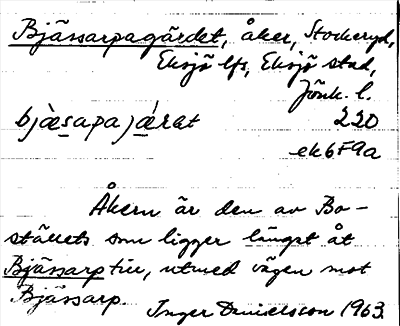 Bjässarpagärdet, åker, Stockeryd,
Eksjö lfs, Eksjö stad,
Jönk. l.
bjæ̀sapajǽrat 220
ek6F9a
Åkern är den av Bo-
ställets som ligger längst åt
Bjässarp till, utmed vägen mot
Bjässarp.
Inger Danielsson 1963.